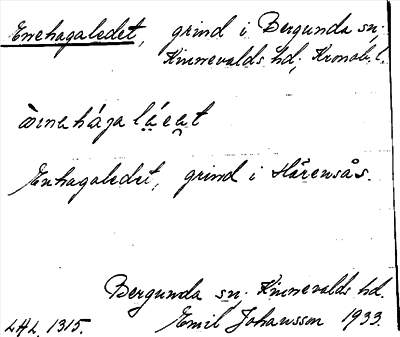 Enehagaledet, grind i Bergunda sn;
Kinnevalds hd; Kronob. l.
Enhagaledet, grind i Härensås.
Bergunda sn; Kinnevalds hd.
LHL. 1315. Emil Johansson 1933.